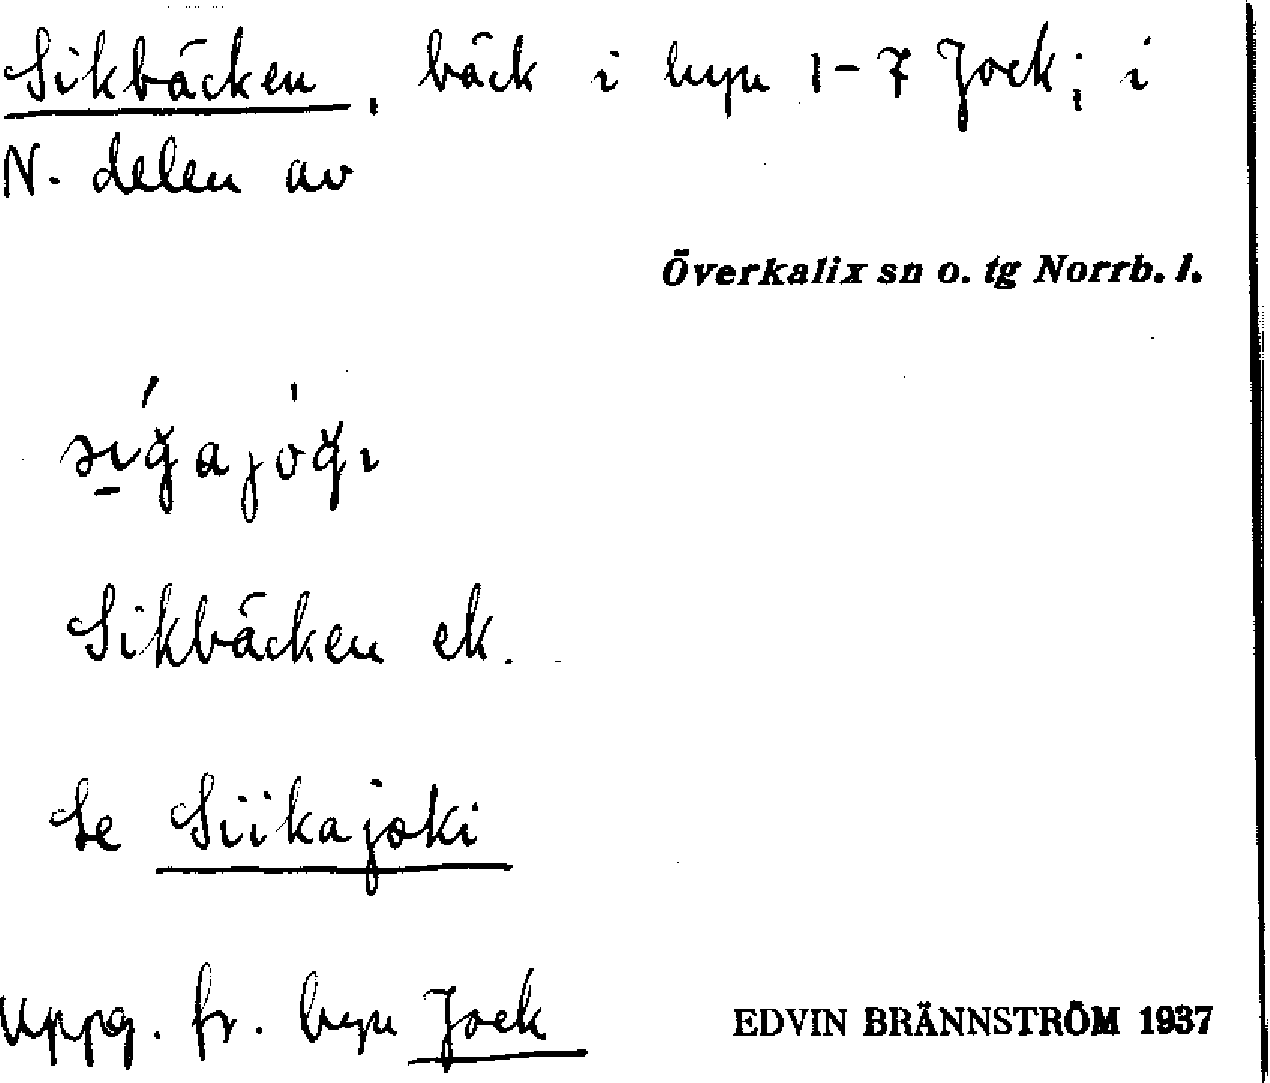 Sikbäcken, bäck i byn 1-7 Jock; i
N. delen av
Överkalix sn o. tg Norrb. l.
Sikbäcken ek.
Se Siikajoki
Uppg. fr. byn Jock
EDVIN BRÄNNSTRÖM 1937